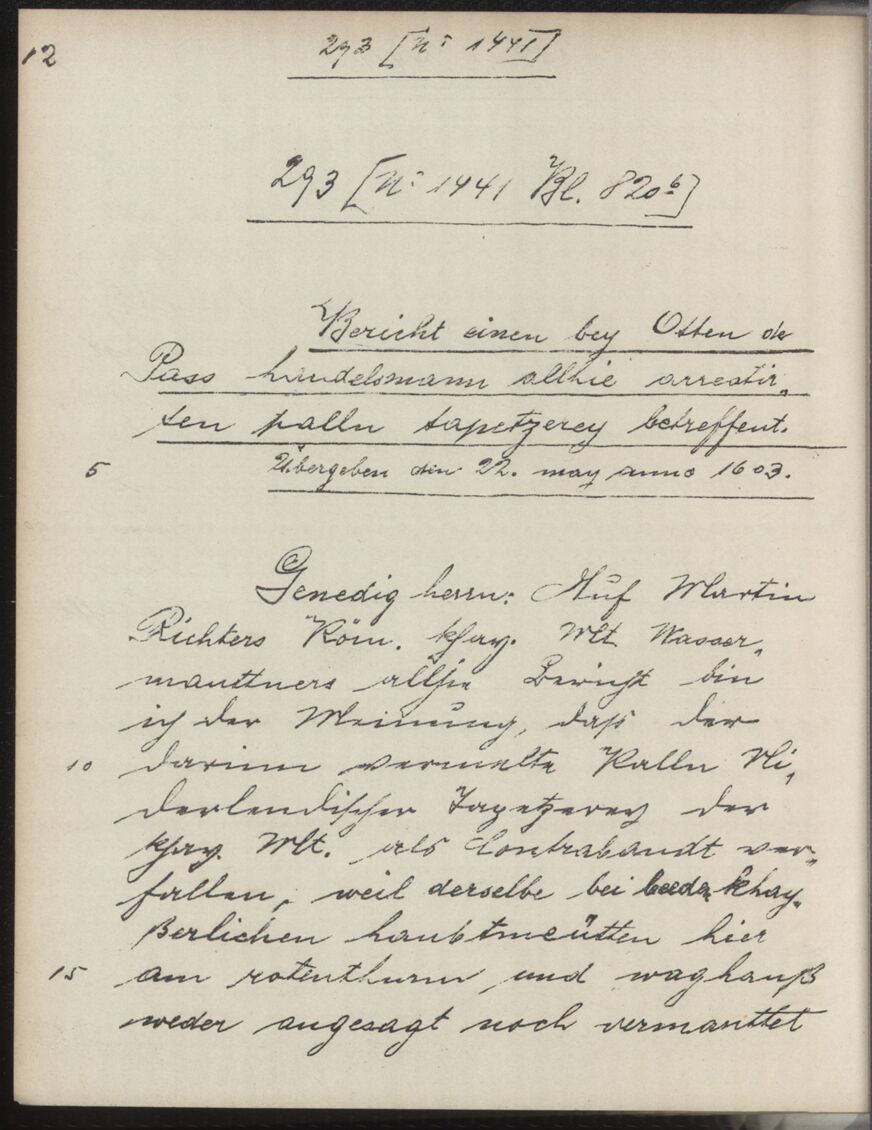 12
293 [No 1441]
293 [No 1441 Bl. 820b]
Bericht einen bey Otten de
Pass handelsmann allhie arrestir„
ten palln tapetzerey betreffent.
5 Übergeben den 22. may anno 1603.
Genedig herrn: Auf Martin
Richters Röm. khay. Mt. Wasser„
mauttners allhie Bericht bin
ich der Meinung, daß der
10 darinn vermelte Palln Ni„
derlendischer Tapetzerey der
khay. Mt. als Contrabandt ver„
fallen, weil derselbe bei beeden khay„
ßerlichen haubtmeütten hier
15 am rotenthurm und waghauß
weder angesagt noch vermauttet